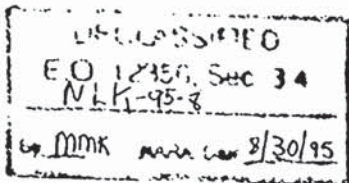 DECLASSIFIED
E.O. 12356, Sec 3.4
NLK-95-8
By MMK NARA Date 8/30/95